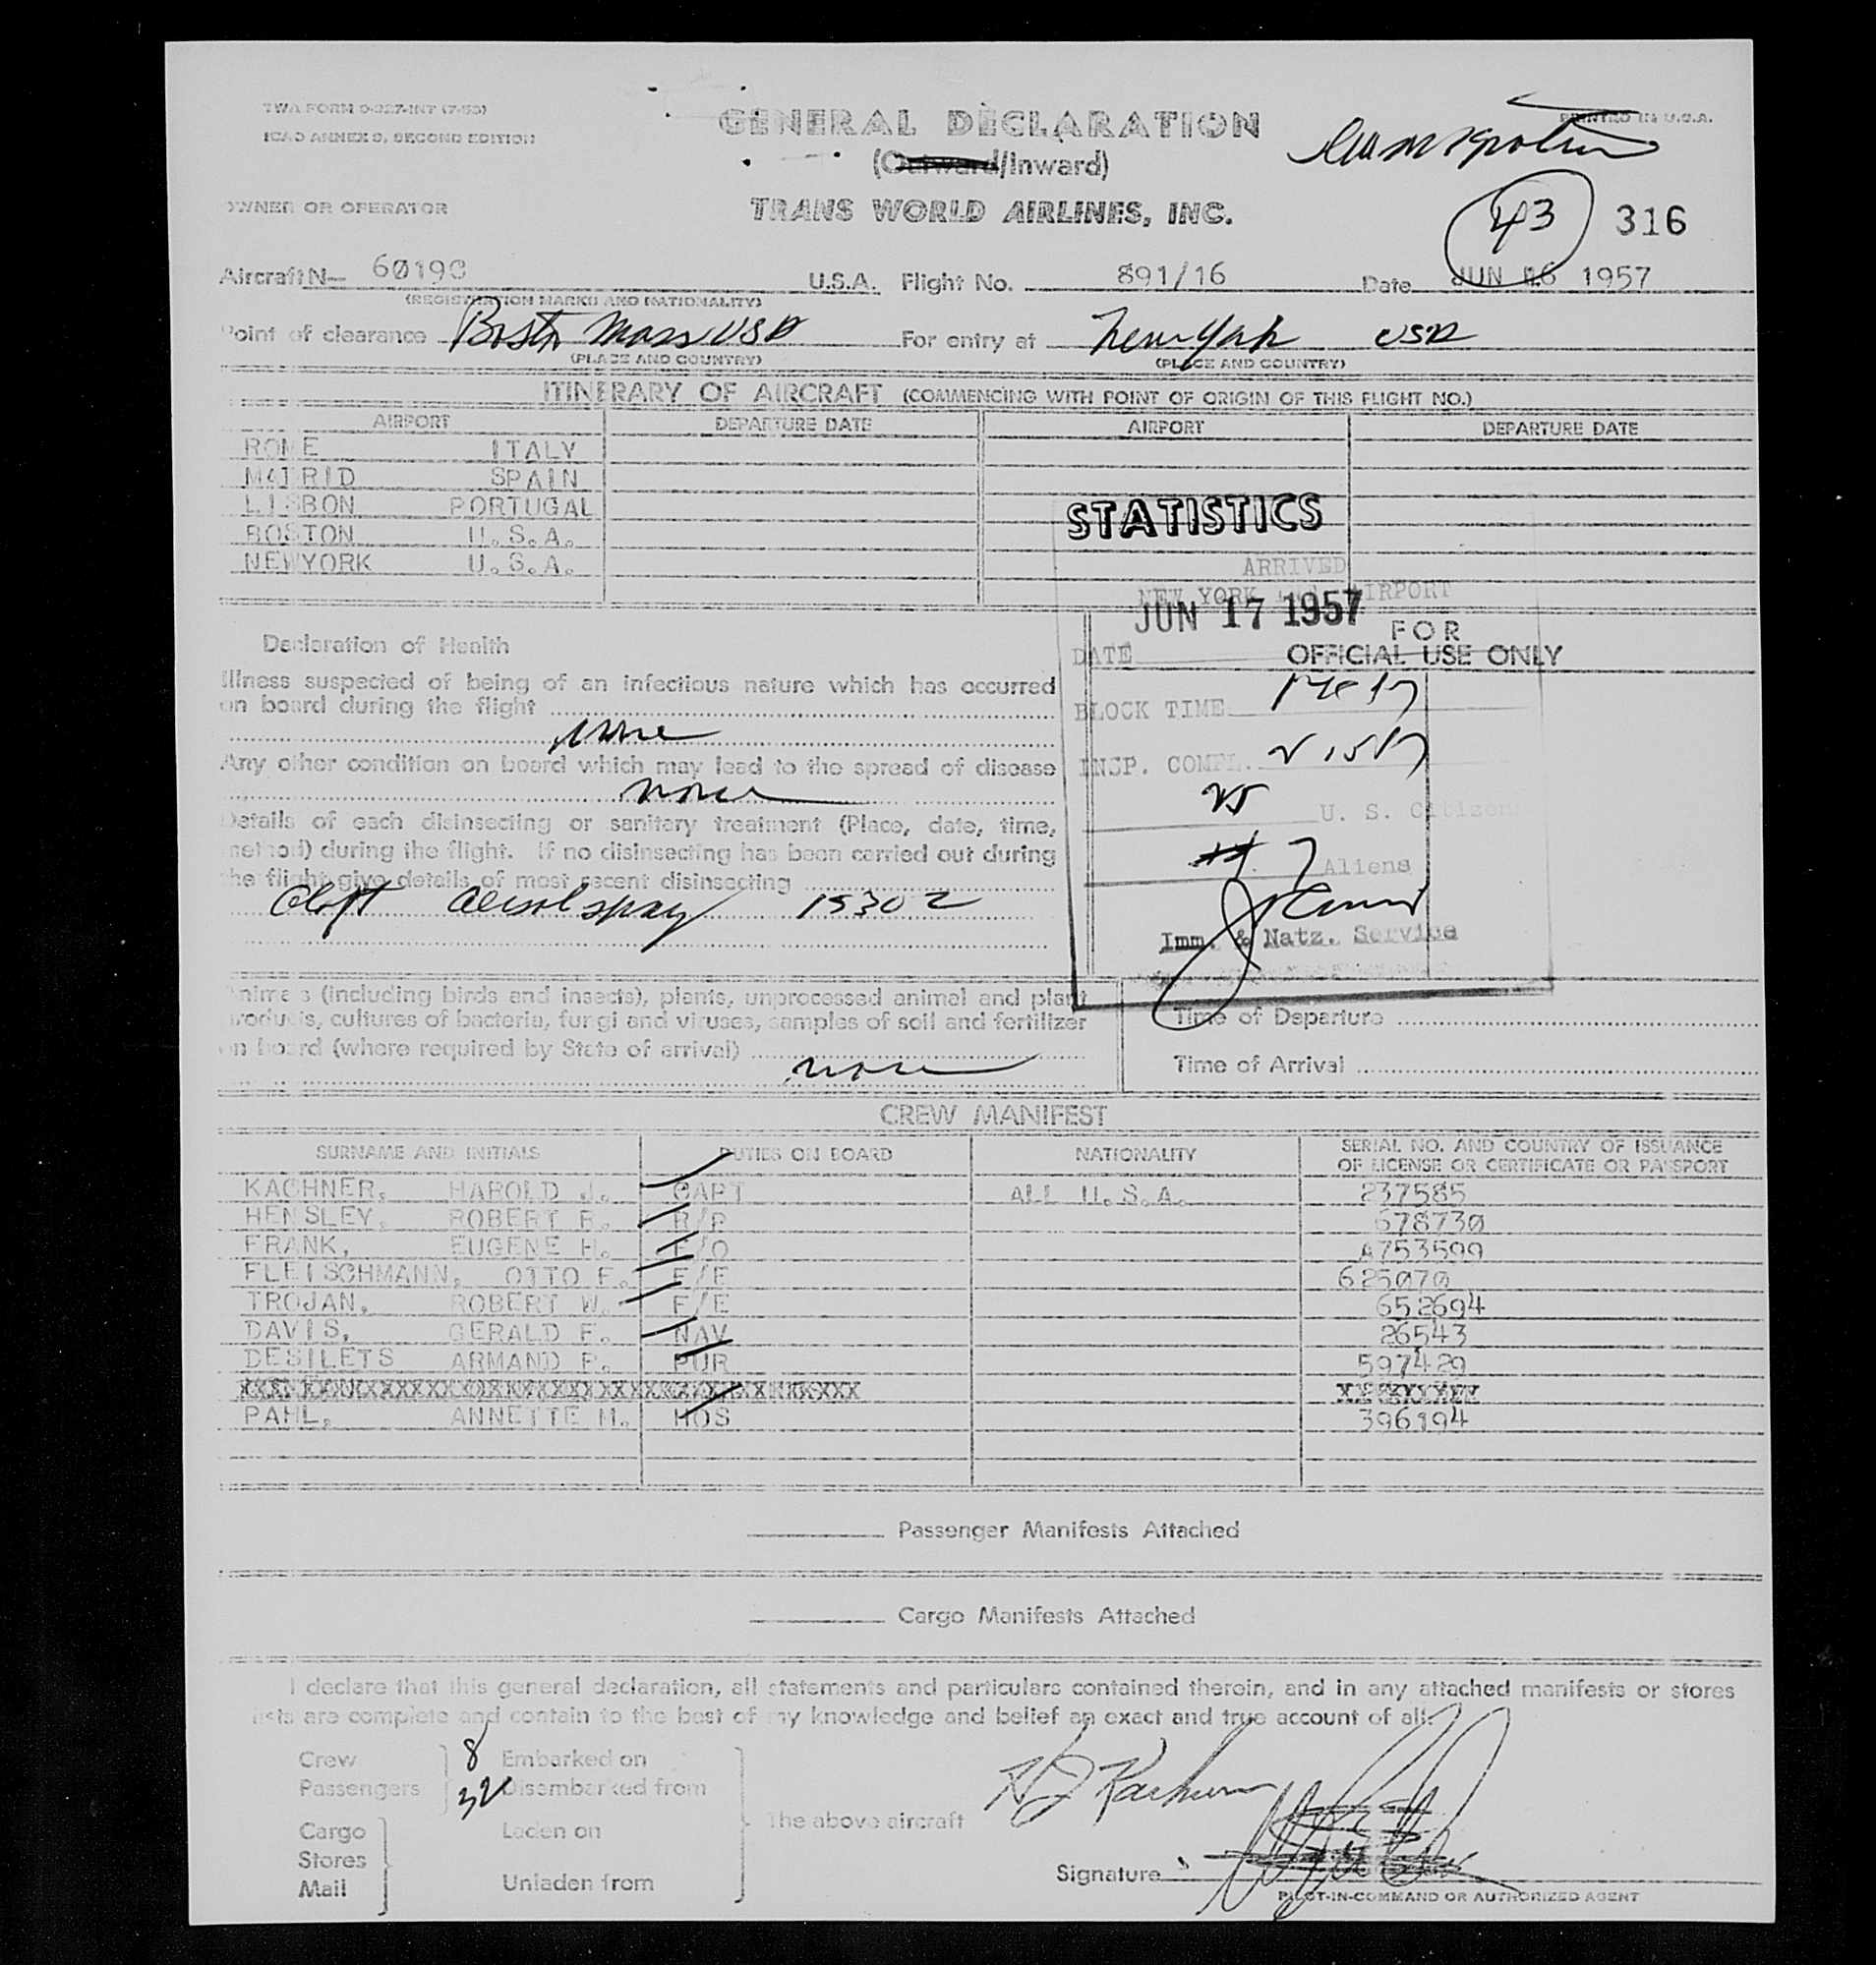 TWA FORM O-327-INT (7-53)
ICAO ANNEX 9, SECOND EDITION
PRINTED IN U.S.A.
GENERAL DECLARATION
(Outward/Inward)
OWNER OR OPERATOR
TRANS WORLD AIRLINES, INC.
43
316
Aircraft N— 6019C U.S.A. Flight No. 891/16 Date JUN 16 1957
(REGISTRATION MARKS AND NATIONALITY)
Point of clearance Boston Mass USA For entry at New York USA
(PLACE AND COUNTRY) (PLACE AND COUNTRY)
ITINERARY OF AIRCRAFT (COMMENCING WITH POINT OF ORIGIN OF THIS FLIGHT NO.)
AIRPORT DEPARTURE DATE AIRPORT DEPARTURE DATE
ROME ITALY
MADRID SPAIN
LISBON PORTUGAL
BOSTON U.S.A.
NEWYORK U.S.A.
STATISTICS
ARRIVED
NEW YORK AIRPORT
JUN 17 1957
FOR
DATE
OFFICIAL USE ONLY
BLOCK TIME
INSP. COMPL.
25 U. S. Citizens
7 Aliens
Imm. & Natz. Service
Declaration of Health
Illness suspected of being of an infectious nature which has occurred
on board during the flight
none
Any other condition on board which may lead to the spread of disease
none
Details of each disinsecting or sanitary treatment (Place, date, time,
method) during the flight. If no disinsecting has been carried out during
the flight give details of most recent disinsecting
aerosol spray 1530Z
Animals (including birds and insects), plants, unprocessed animal and plant
products, cultures of bacteria, fungi and viruses, samples of soil and fertilizer
on board (where required by State of arrival)
none
Time of Departure
Time of Arrival
CREW MANIFEST
SURNAME AND INITIALS DUTIES ON BOARD NATIONALITY SERIAL NO. AND COUNTRY OF ISSUANCE
OF LICENSE OR CERTIFICATE OR PASSPORT
KACHNER, HAROLD J. CAPT ALL U.S.A. 237585
HENSLEY, ROBERT R. R/P 678730
FRANK, EUGENE H. F/O A753599
FLEISCHMANN, OTTO F. F/E 625070
TROJAN, ROBERT W. F/E 652694
DAVIS, GERALD F. NAV 26543
DESILETS ARMAND P. PUR 597429
PAHL, ANNETTE M. HOS 396194
Passenger Manifests Attached
Cargo Manifests Attached
I declare that this general declaration, all statements and particulars contained therein, and in any attached manifests or stores
lists are complete and contain to the best of my knowledge and belief an exact and true account of all:
Crew 8 Embarked on
Passengers 32 Disembarked from
The above aircraft
H J Kachner
Cargo Laden on
Stores
Mail Unladen from
Signature
PILOT-IN-COMMAND OR AUTHORIZED AGENT